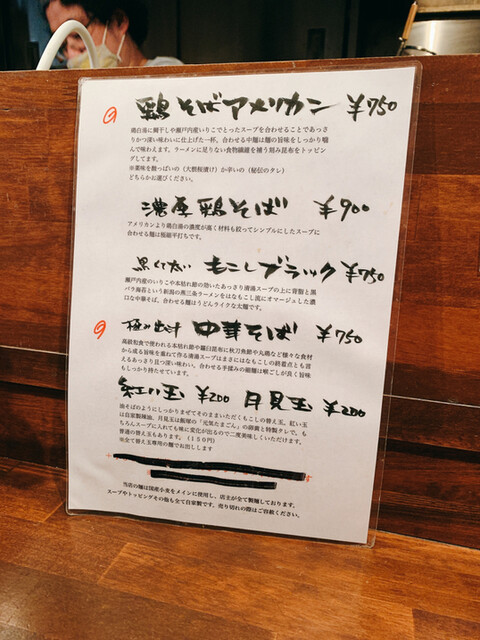 鶏そばアメリカン ¥750
鶏白湯に鯛干しや瀬戸内産いりこでとったスープを合わせることであっさ
りかつ深い味わいに仕上げた一杯。合わせる中麺は麺の旨味をしっかり噛
んで味わえます。ラーメンに足りない食物繊維を補う刻み昆布をトッピン
グしてます。
※薬味を酸っぱいの(大根桜漬け)か辛いの(秘伝のタレ)
どちらかお選びください。
濃厚鶏そば ¥900
アメリカンより鶏白湯の濃度が高く材料も絞ってシンプルにしたスープに
合わせる麺は極細平打ちです。
黒くて太い もこしブラック ¥750
瀬戸内産のいりこや本枯れ節の効いたあっさり清湯スープの上に背脂と黒
バラ海苔という新潟の燕三条ラーメンをはなもこし流にオマージュした濃
口な中華そば。合わせる麺はうどんライクな太麺です。
極み出汁 中華そば ¥750
高級和食で使われる本枯れ節や羅臼昆布に秋刀魚節や丸鶏など様々な食材
から成る旨味を重ねて作る清湯スープはまさにはなもこしの終着点とも言
えるあっさり且つ深い味わい。合わせる手揉みの細麺は喉ごしが良く旨味
もしっかり持たせています。
紅い玉 ¥200 月見玉 ¥200
油そばのようにしっかりまぜてそのままいただくもこしの替え玉。紅い玉
は自家製辣油、月見玉は飯塚の「元気たまごん」の卵黄と特製タレで。も
ちろんスープに入れても味に変化が出るので二度美味しくいただけます。
普通の替え玉もあります。(150円)
※全て替え玉専用の麺でお出しします
当店の麺は国産小麦をメインに使用し、店主が全て製麺しております。
スープやトッピングその他も全て自家製です。売り切れの際はご容赦ください。